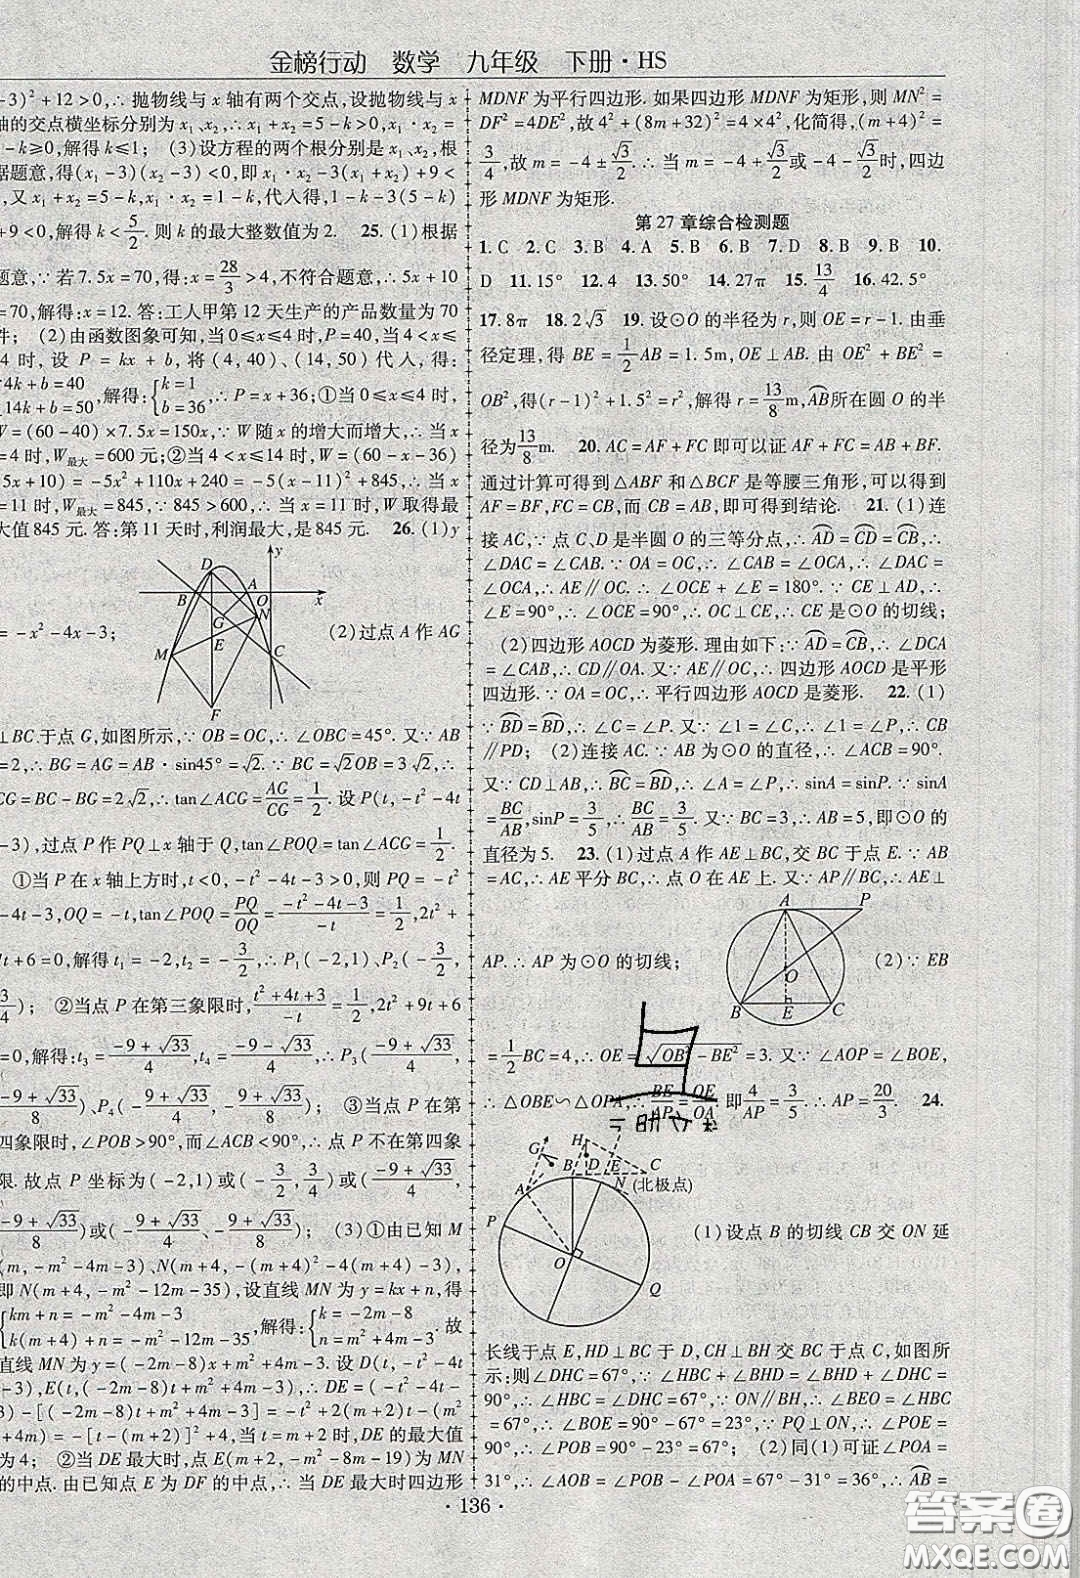 金榜行动 数学 九年级 下册·HS
-3)²+12>0,∴抛物线与x轴有两个交点,设抛物线与x
轴的交点横坐标分别为x₁、x₂,∴x₁+x₂=5-k>0,x₁·x₂=
-k≥0,解得k≤1; (3)设方程的两个根分别是x₁、x₂,根
据题意,得(x₁-3)(x₂-3)<0,即x₁·x₂-3(x₁+x₂)+9<
,又x₁+x₂=5-k,x₁·x₂=1-k,代入得,1-k-3(5-k)
+9<0,解得k<5/2.则k的最大整数值为2. 25.(1)根据
题意,∵若7.5x=70,得:x=28/3>4,不符合题意,∴5x+10
=70,解得:x=12.答:工人甲第12天生产的产品数量为70
件; (2)由函数图象可知,当0≤x≤4时,P=40,当4<x≤
14时,设P=kx+b,将(4,40)、(14,50)代入得:
{4k+b=40 14k+b=50,解得:{k=1 b=36,∴P=x+36;①当0≤x≤4时,
W=(60-40)×7.5x=150x,∵W随x的增大而增大,∴当x
=4时,W最大=600元;②当4<x≤14时,W=(60-x-36)
(5x+10)=-5x²+110x+240=-5(x-11)²+845,∴当x
=11时,W最大=845,∵845>600,∴当x=11时,W取得最
大值845元.答:第11天时,利润最大,是845元. 26.(1)y
D A y B O x G N E M C F
=-x²-4x-3; (2)过点A作AG
⊥BC于点G,如图所示,∵OB=OC,∴∠OBC=45°.又∵AB
=2,∴BG=AG=AB·sin45°=√2.∵BC=√2OB=3√2,∴
CG=BC-BG=2√2,∴tan∠ACG=AG/CG=1/2.设P(t,-t²-4t
-3),过点P作PQ⊥x轴于Q,tan∠POQ=tan∠ACG=1/2.
①当P在x轴上方时,t<0,-t²-4t-3>0,则PQ=-t²
-4t-3,OQ=-t,tan∠POQ=PQ/OQ=(-t²-4t-3)/(-t)=1/2,2t²+
7t+6=0,解得t₁=-2,t₂=-3/2,∴P₁(-2,1)、P₂(-3/2,
3/4); ②当点P在第三象限时,(t²+4t+3)/(-t)=1/2,2t²+9t+6
=0,解得:t₃=(-9+√33)/4,t₄=(-9-√33)/4,∴P₃((-9+√33)/4,
(-9+√33)/8)、P₄(-(9+√33)/4,(-9+√33)/8); ③当点P在第
四象限时,∠POB>90°,而∠ACB<90°,∴点P不在第四象
限.故点P坐标为(-2,1)或(-3/2,3/4)或((-9+√33)/4,
(-9+√33)/8)或(-(9+√33)/4,-(9+√33)/8); (3)①由已知M
(m,-m²-4m-3),N[m+4,-(m+4)²-4(m+4)-3],
即N(m+4,-m²-12m-35),设直线MN为y=kx+n,得
{km+n=-m²-4m-3 k(m+4)+n=-m²-12m-35,解得:{k=-2m-8 n=m²+4m-3.故
直线MN为y=(-2m-8)x+m²+4m-3.设D(t,-t²-4t
-3),E(t,(-2m-8)t+m²+4m-3),∴DE=(-t²-4t
-3)-[(-2m-8)t+m²+4m-3]=-t²+2(m+2)t-(m²
+4m)=-[t-(m+2)]²+4,当t=m+2时,DE的最大值
为4; ②当DE最大时,点E(m+2,-m²-8m-19)为MN
的中点.由已知点E为DF的中点,∴当DE最大时四边形
MDNF为平行四边形.如果四边形MDNF为矩形,则MN²=
DF²=4DE²,故4²+(8m+32)²=4×4²,化简得,(m+4)²=
3/4,故m=-4±√3/2.∴当m=-4+√3/2或-4-√3/2时,四边
形MDNF为矩形.
第27章综合检测题
1.C 2.C 3.B 4.A 5.B 6.B 7.D 8.B 9.B 10.
D 11.15° 12.4 13.4 14.27π 15.13/4 16.42.5°
17.8π 18.2√3 19.设⊙O的半径为r,则OE=r-1.由垂
径定理,得BE=1/2AB=1.5m,OE⊥AB.由OE²+BE²=
OB²,得(r-1)²+1.5²=r²,解得r=13/8m,AB所在圆O的半
径为13/8m. 20.AC=AF+FC即可以证AF+FC=AB+BF.
通过计算可得到△ABF和△BCF是等腰三角形,可以得到
AF=BF,FC=BC,而CB=AB,可以得到结论. 21.(1)连
接AC,∵点C、D是半圆O的三等分点,∴AD=CD=CB,∴
∠DAC=∠CAB.∵OA=OC,∴∠CAB=∠OCA,∴∠DAC=
∠OCA,∴AE∥OC,∴∠OCE+∠E=180°.∵CE⊥AD,∴
∠E=90°,∴∠OCE=90°,∴OC⊥CE,∴CE是⊙O的切线;
(2)四边形AOCD为菱形.理由如下:∵AD=CB,∴∠DCA
=∠CAB,∴CD∥OA.又∵AE∥OC,∴四边形AOCD是平形
四边形.∵OA=OC,∴平行四边形AOCD是菱形. 22.(1)
∵BD=BD,∴∠C=∠P.又∵∠1=∠C,∴∠1=∠P,∴CB
∥PD; (2)连接AC.∵AB为⊙O的直径,∴∠ACB=90°.
又∵CD⊥AB,∴BC=BD,∴∠A=∠P,∴sinA=sinP.∵sinA=
BC/AB,sinP=3/5,∴BC/AB=3/5.又∵BC=3,∴AB=5,即⊙O的
直径为5. 23.(1)过点A作AE⊥BC,交BC于点E.∵AB
=AC,∴AE平分BC,∴点O在AE上.又∵AP∥BC,∴AE⊥
A P O B E C
AP.∴AP为⊙O的切线; (2)∵EB
=1/2BC=4,∴OE=√(OB²-BE²)=3.又∵∠AOP=∠BOE,
∴△OBE∽△OPA,∴BE/AP=OE/OA.即4/AP=3/5.∴AP=20/3. 24.
H G B D E C A N (北极点) P O Q
(1)设点B的切线CB交ON延
长线于点E,HD⊥BC于D,CH⊥BH交BC于点C,如图所
示:则∠DHC=67°,∵∠HBC+∠BHD=∠BHD+∠DHC=
90°,∴∠HBC=∠DHC=67°,∵ON∥BH,∴∠BEO=∠HBC
=67°,∴∠BOE=90°-67°=23°,∵PQ⊥ON,∴∠POE=
90°,∴∠POB=90°-23°=67°; (2)同(1)可证∠POA=
31°,∴∠AOB=∠POB-∠POA=67°-31°=36°,∴AB=
·136·
答案圈
MXQE.COM